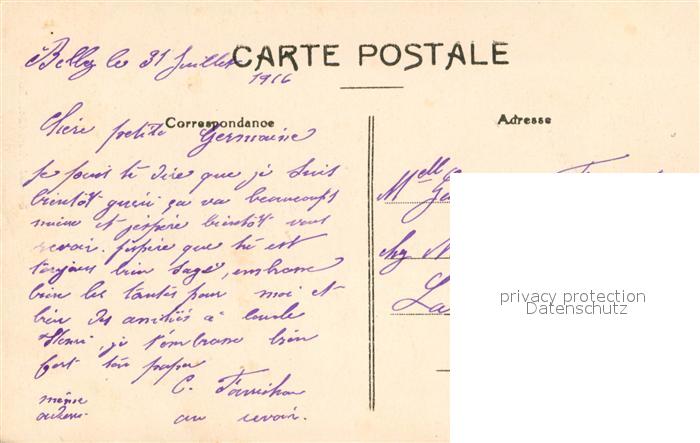 Belley le 31 Juillet
1916
CARTE POSTALE
Correspondance
Adresse
Chère petite Germaine
je puis te dire que je suis
bientôt guéri ça va beaucoups
mieue et j'espère bientôt vous
revoir. j'espère que tu est
toujours bien sage, embrasse
bien les tantes pour moi et
bien des amitiés a
Henri, je t'embrasse bien
fort ton papa
C.
même
au revoir.
Melle
chez
privacy protection
Datenschutz